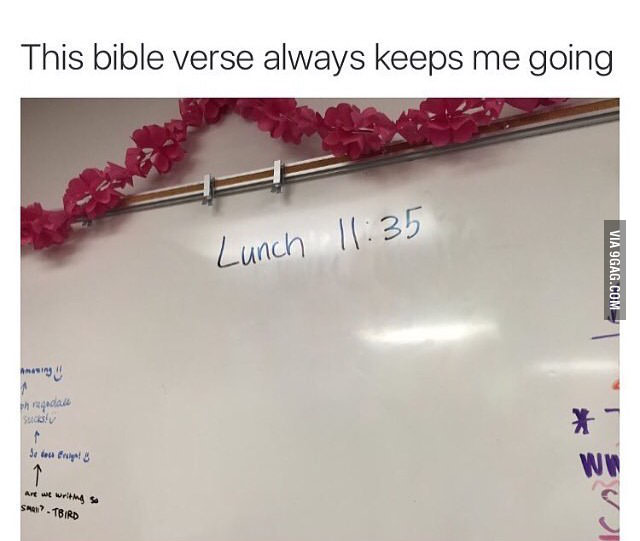 This bible verse always keeps me going
Lunch 11:35
VIA 9GAG.COM
Amazing !!
oh ragodall
sucks!
So does Enright
are we writing so
small? - TBIRD
*
WW